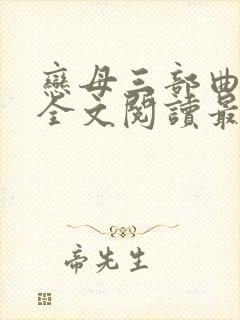 戀母三部曲
全文閱讀最
帝先生